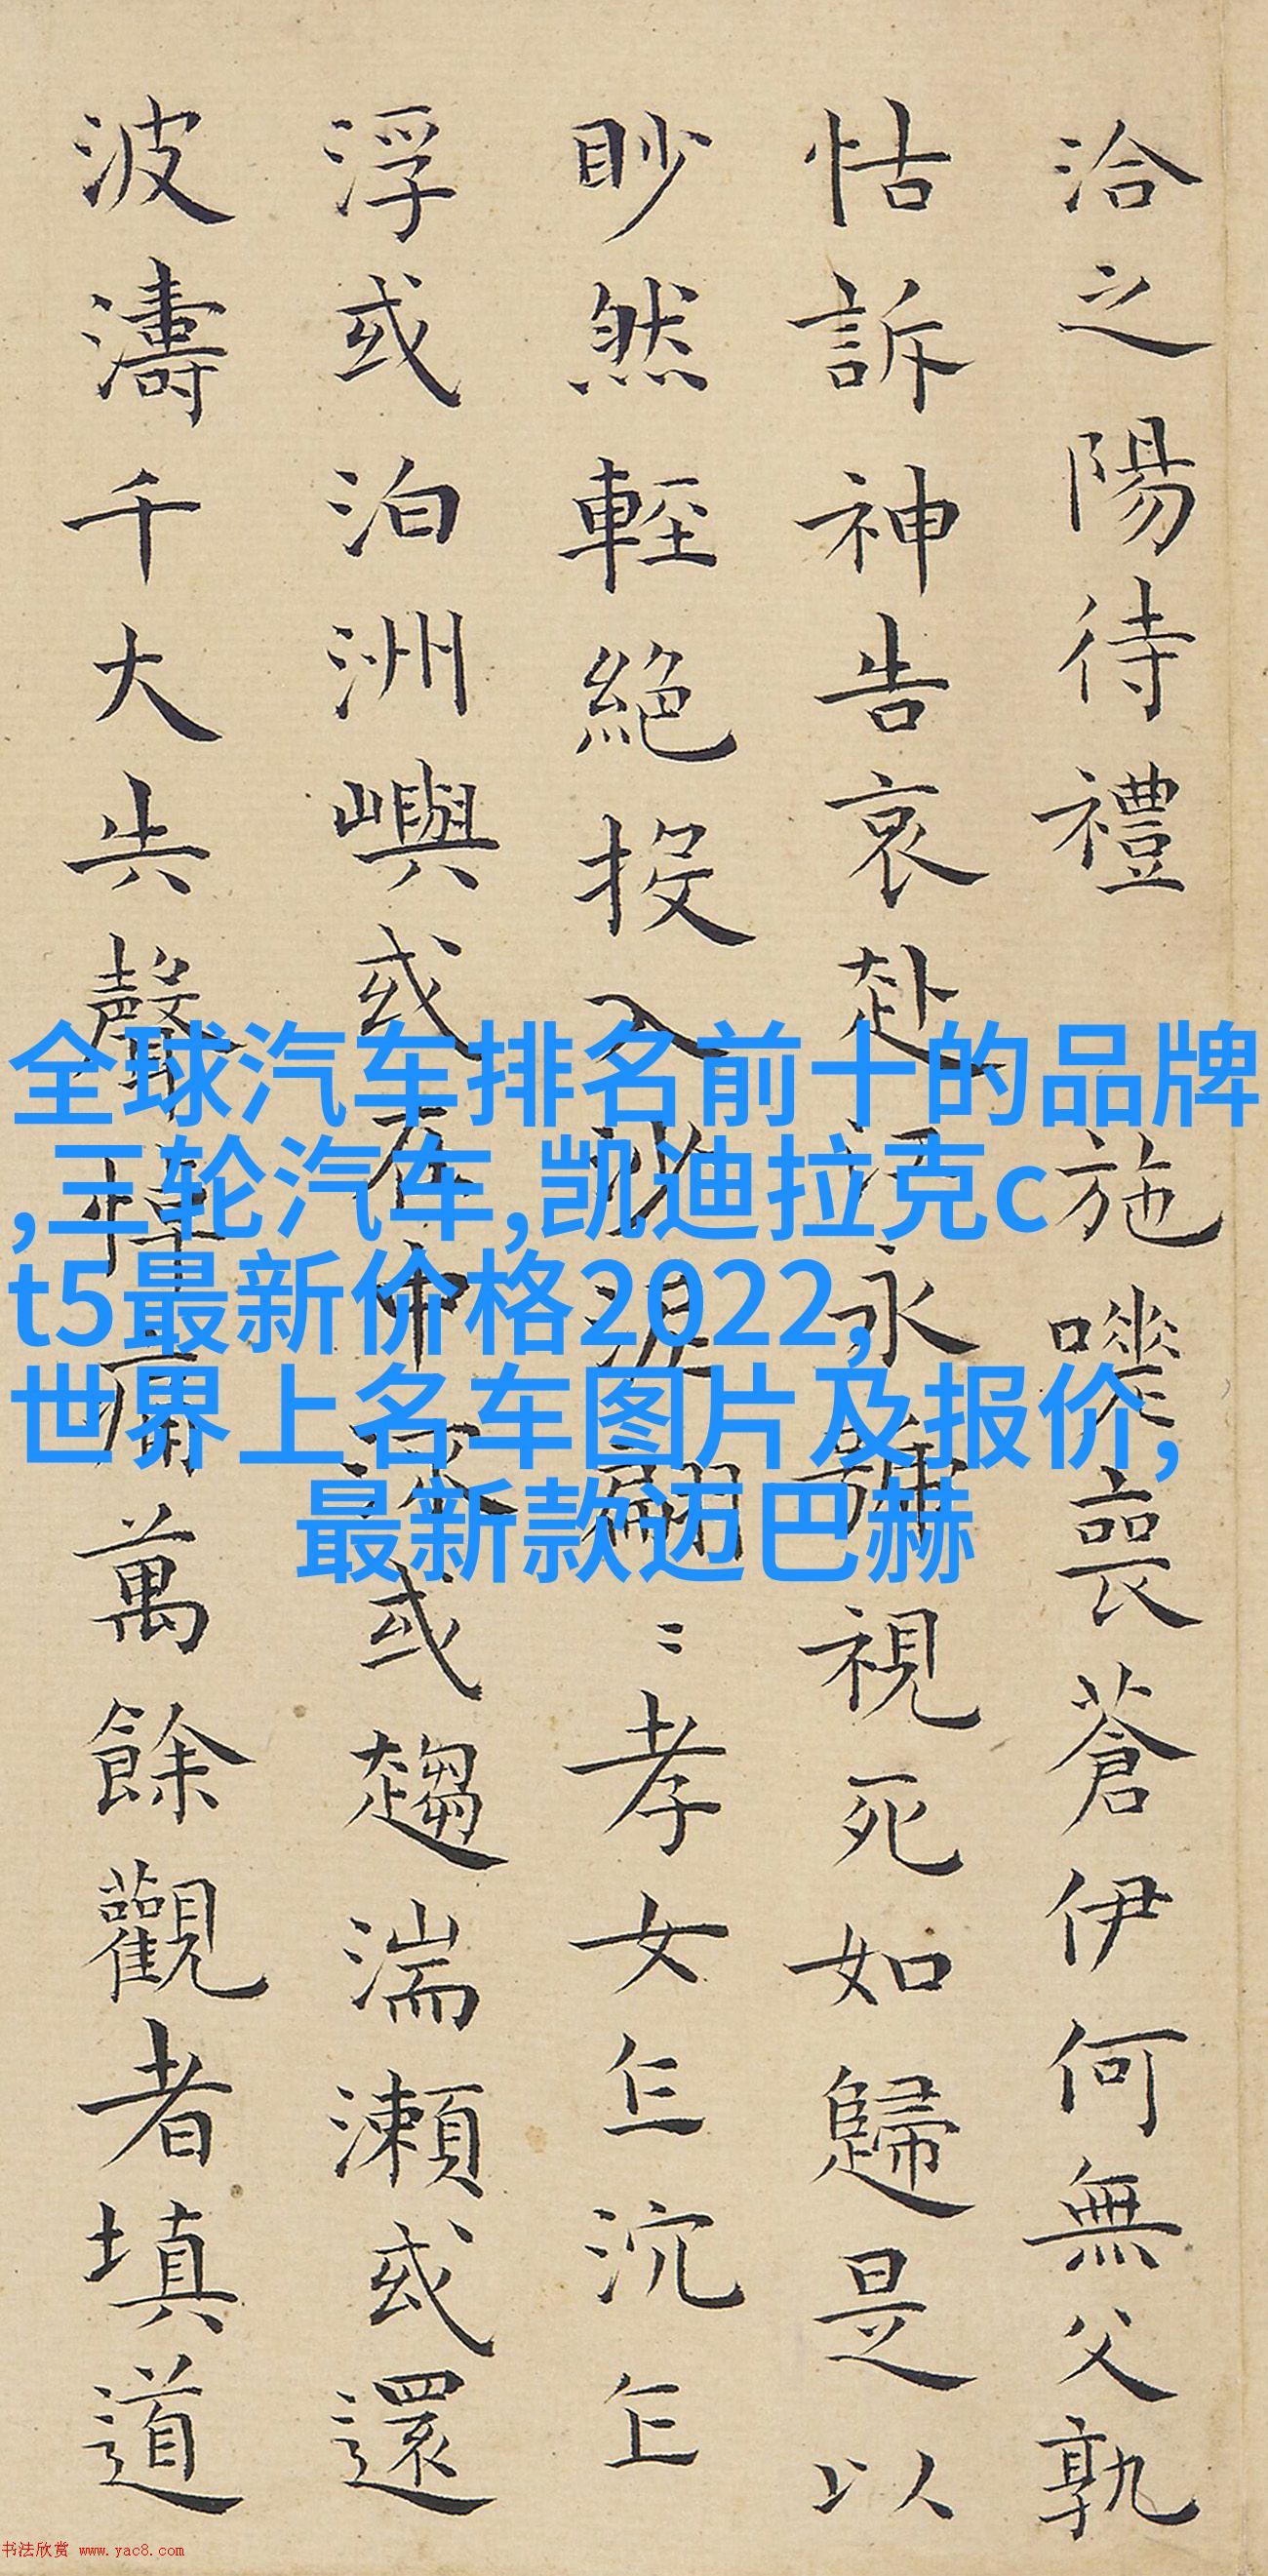 洽之陽待禮 施嗟喪蒼伊何無父孰
怙訴神告哀赴江永號視死如歸是以
眇然輕絕投入沙泥翩=孝女乍沉乍
浮或泊洲嶼或在中流或趨湍瀨或還
波濤千大失聲悼痛萬餘觀者填道
全球汽车排名前十的品牌
,三轮汽车,凯迪拉克c
t5最新价格2022,
世界上名车图片及报价,
最新款迈巴赫
书法欣赏 www.yac8.com